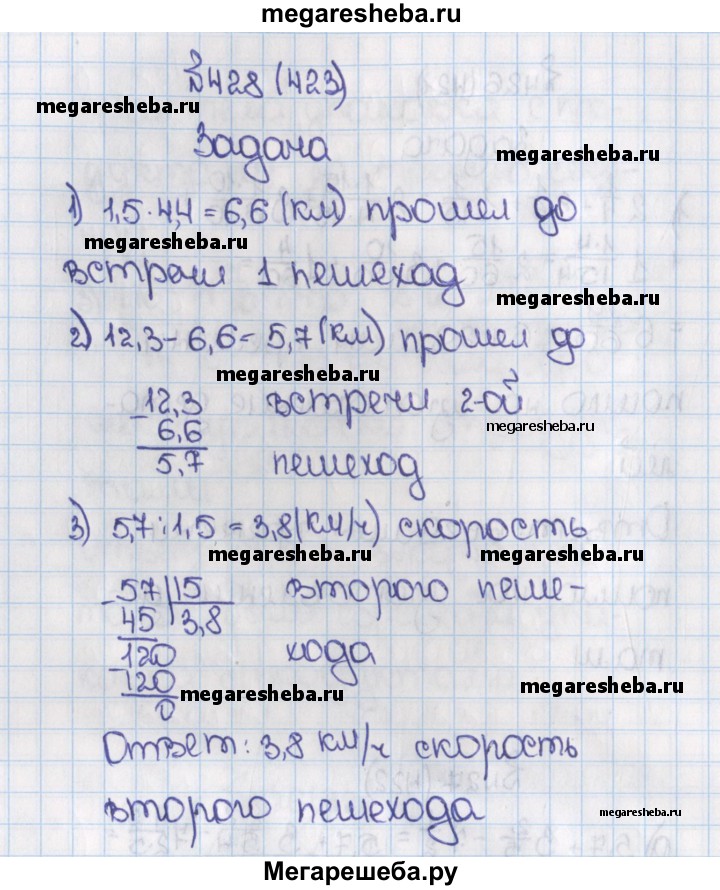 megaresheba.ru
№428 (423)
megaresheba.ru
Задача
megaresheba.ru
1) 1,5 · 4,4 = 6,6 (км) прошел до
megaresheba.ru
встречи 1 пешеход
megaresheba.ru
2) 12,3 - 6,6 = 5,7 (км) прошел до
megaresheba.ru
12,3 встречи 2-ой
megaresheba.ru
- 6,6
5,7 пешеход
3) 5,7 : 1,5 = 3,8 (км/ч) скорость
megaresheba.ru megaresheba.ru
- 57 | 15 второго пеше-
45 3,8
- 120 хода
120
megaresheba.ru megaresheba.ru
0
Ответ: 3,8 км/ч скорость
второго пешехода
megaresheba.ru
Мегарешеба.ру